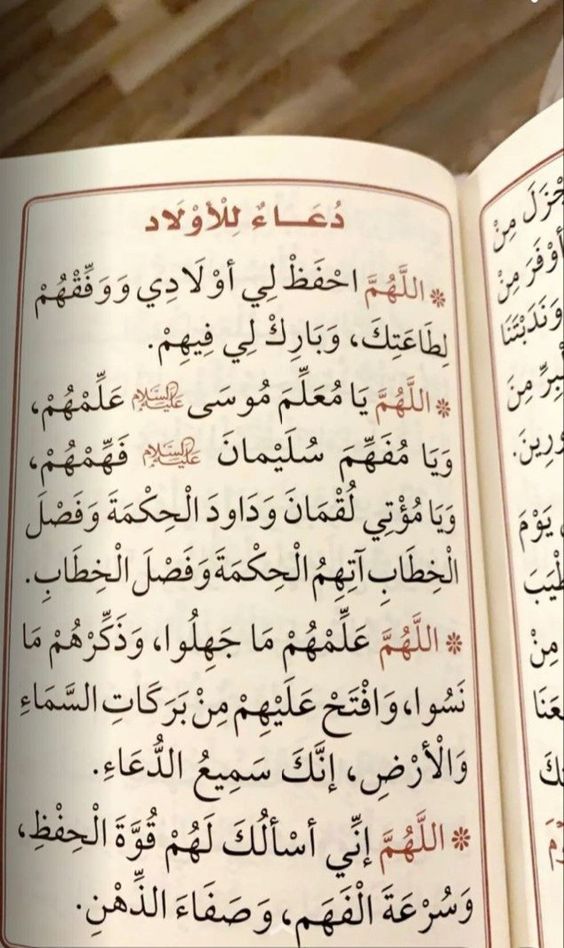 دُعَـاءٌ لِلْأَوْلَادِ
* اللَّهُمَّ احْفَظْ لِي أَوْلَادِي وَوَفِّقْهُمْ
لِطَاعَتِكَ، وَبَارِكْ لِي فِيهِمْ.
* اللَّهُمَّ يَا مُعَلِّمَ مُوسَى عَلَيْهِ السَّلَام عَلِّمْهُمْ،
وَيَا مُفَهِّمَ سُلَيْمانَ عَلَيْهِ السَّلَام فَهِّمْهُمْ،
وَيَا مُؤْتِي لُقْمَانَ وَدَاودَ الْحِكْمَةَ وَفَصْلَ
الْخِطَابِ آتِهِمُ الْحِكْمَةَ وَفَصْلَ الْخِطَابِ.
* اللَّهُمَّ عَلِّمْهُمْ مَا جَهِلُوا، وَذَكِّرْهُمْ مَا
نَسُوا، وَافْتَحْ عَلَيْهِمْ مِنْ بَرَكَاتِ السَّمَاءِ
وَالْأَرْضِ، إِنَّكَ سَمِيعُ الدُّعَاءِ.
* اللَّهُمَّ إِنِّي أَسْأَلُكَ لَهُمْ قُوَّةَ الْحِفْظِ،
وَسُرْعَةَ الْفَهَمِ، وَصَفَاءَ الذِّهْنِ.
مِنْ
أَوْفَرَ مِنْ
مِنَ
يَوْمَ
مِنْ